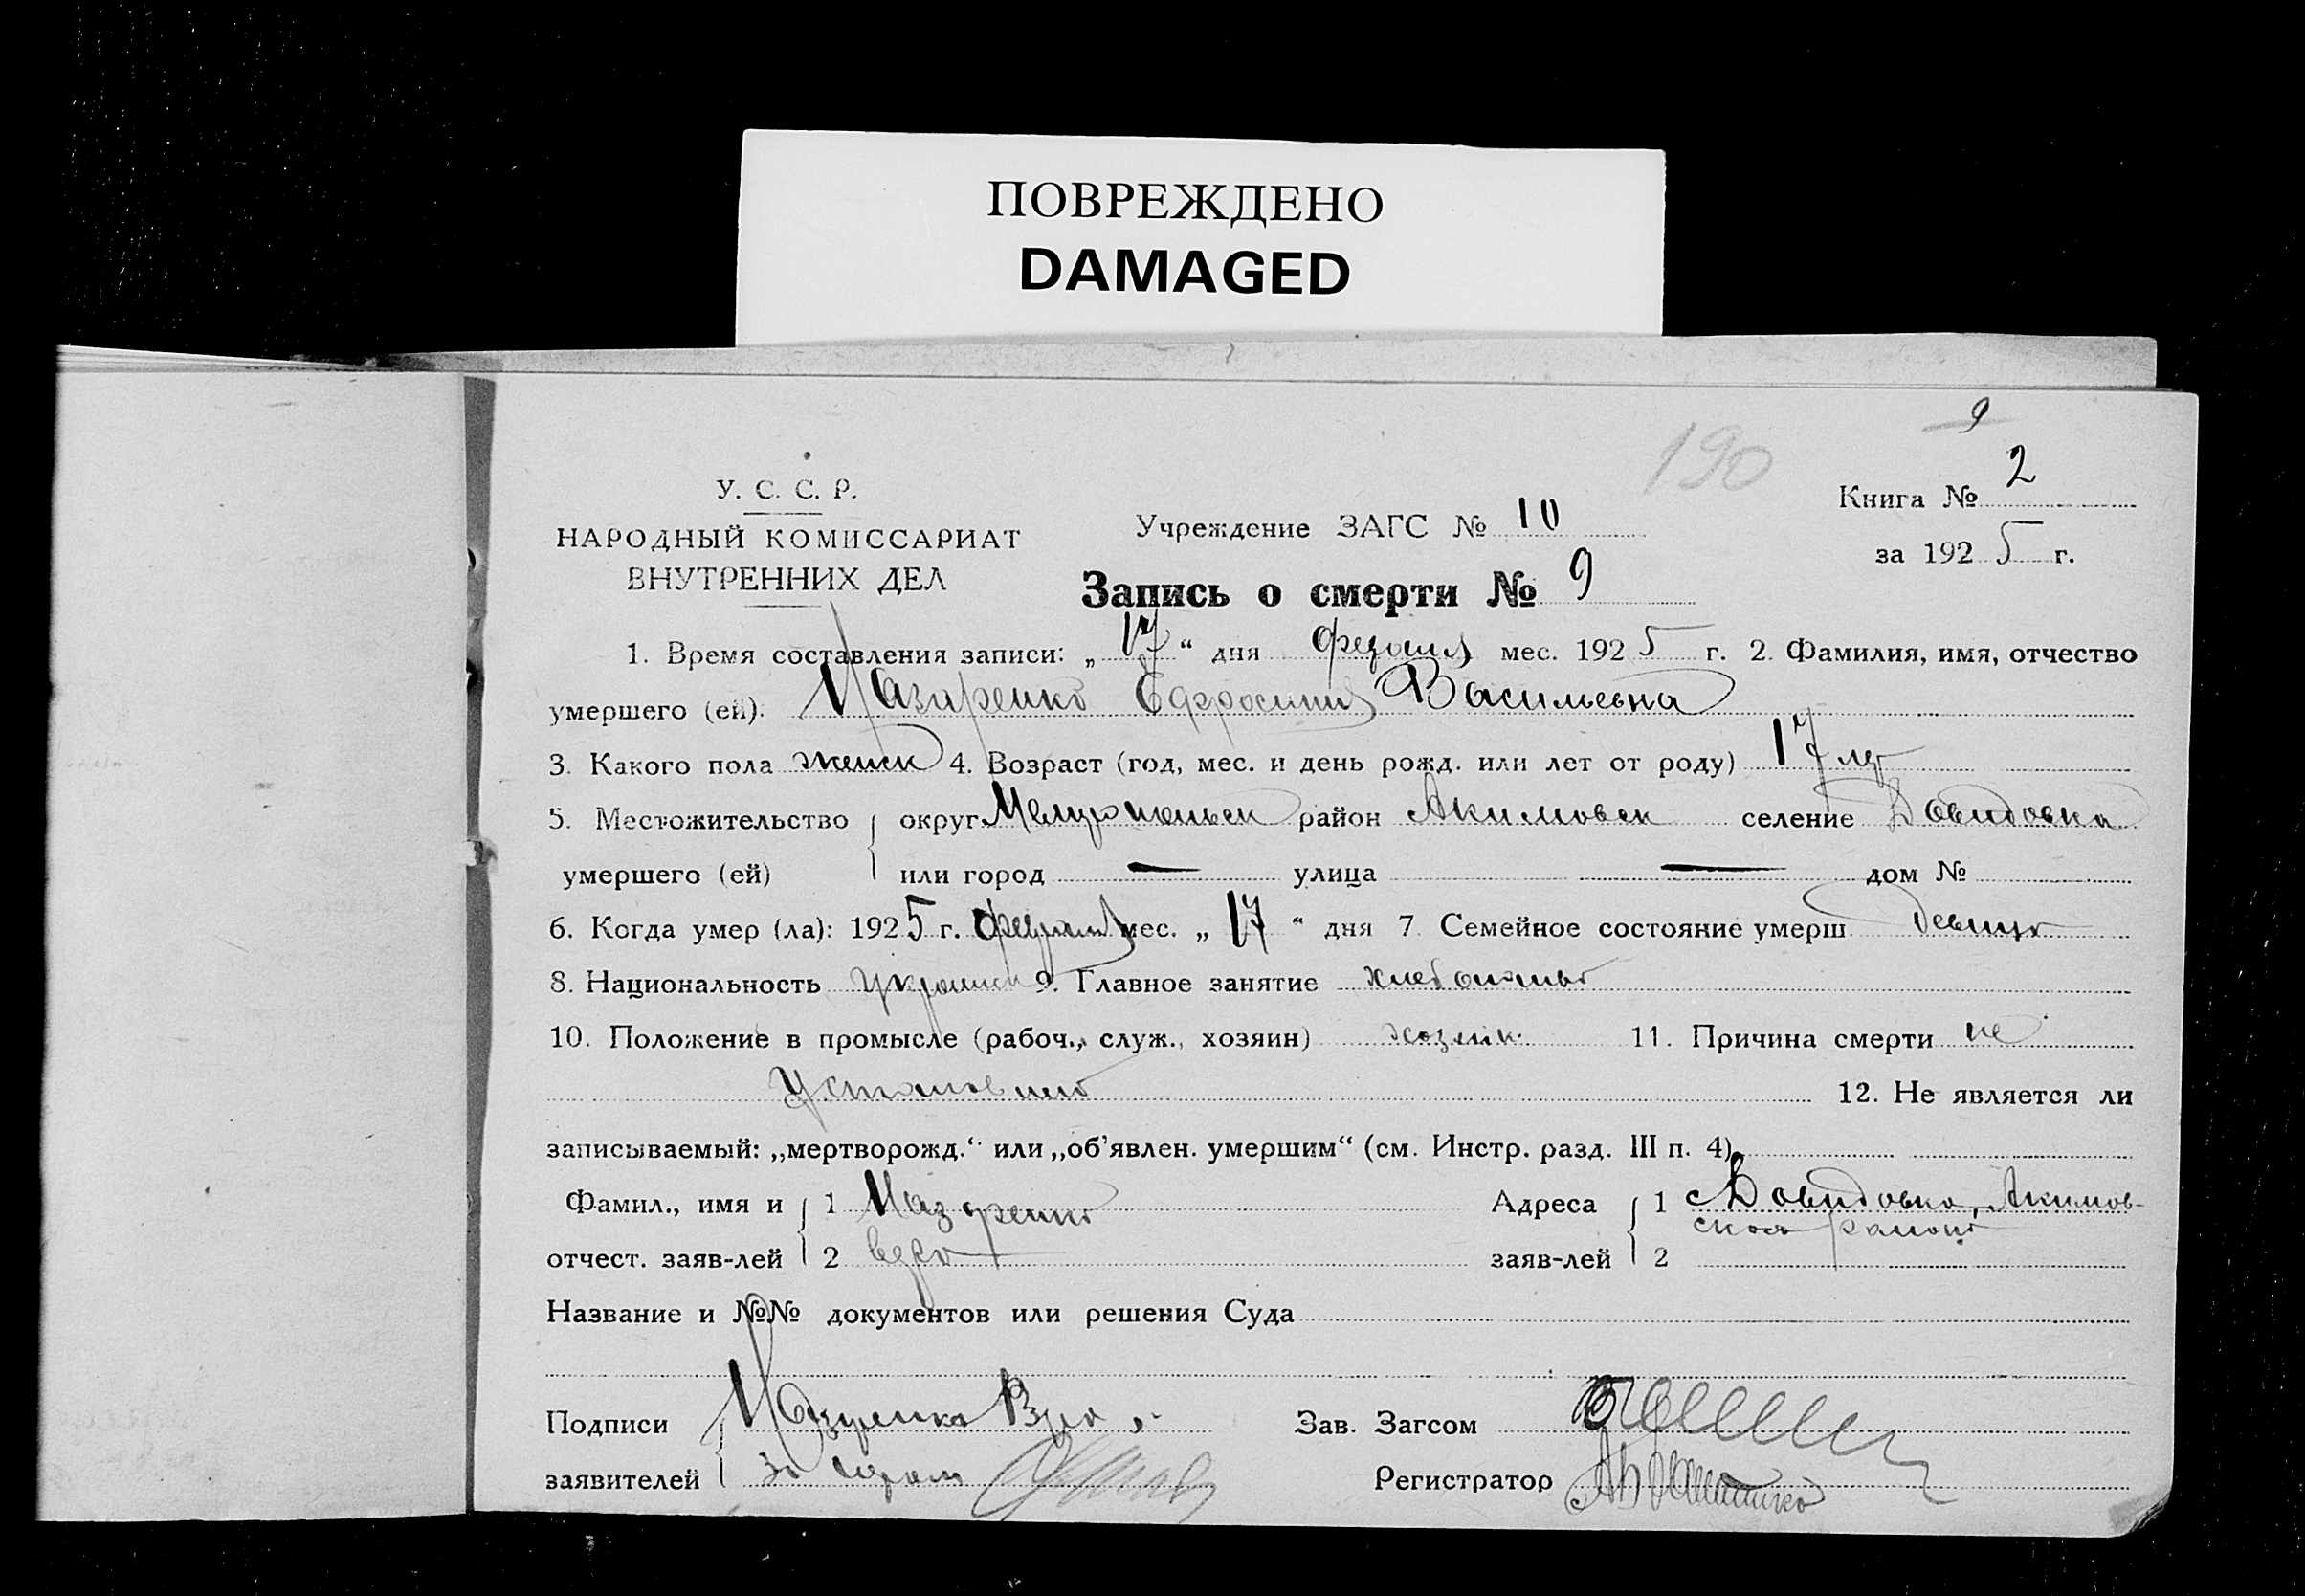 ПОВРЕЖДЕНО
DAMAGED
9
190
Книга № 2
У. С. С. Р.
Учреждение ЗАГС № 10
за 1925 г.
НАРОДНЫЙ КОМИССАРИАТ
ВНУТРЕННИХ ДЕЛ
Запись о смерти № 9
1. Время составления записи: „17“ дня мес. 1925 г. 2. Фамилия, имя, отчество
умершего (ей). Назаренко Ефросиния Васильевна
3. Какого пола женск 4. Возраст (год, мес. и день рожд. или лет от роду) 17 лет
5. Местожительство округ Мелитопольск район Акимовск селение Довидовка
умершего (ей) или город — улица — дом №
6. Когда умер (ла): 1925 г. мес. „17“ дня 7 Семейное состояние умерш девица
8. Национальность украинск 9. Главное занятие
10. Положение в промысле (рабоч., служ., хозяин) 11. Причина смерти не
12. Не является ли
записываемый: „мертворожд.“ или „об’явлен. умершим“ (см. Инстр. разд. III п. 4)
Фамил., имя и 1 Назаренко Адреса 1 Довидовка, Акимов-
ского района
отчест. заяв-лей 2 заяв-лей 2
Название и №№ документов или решения Суда
Подписи Назаренко Зав. Загсом
заявителей Регистратор